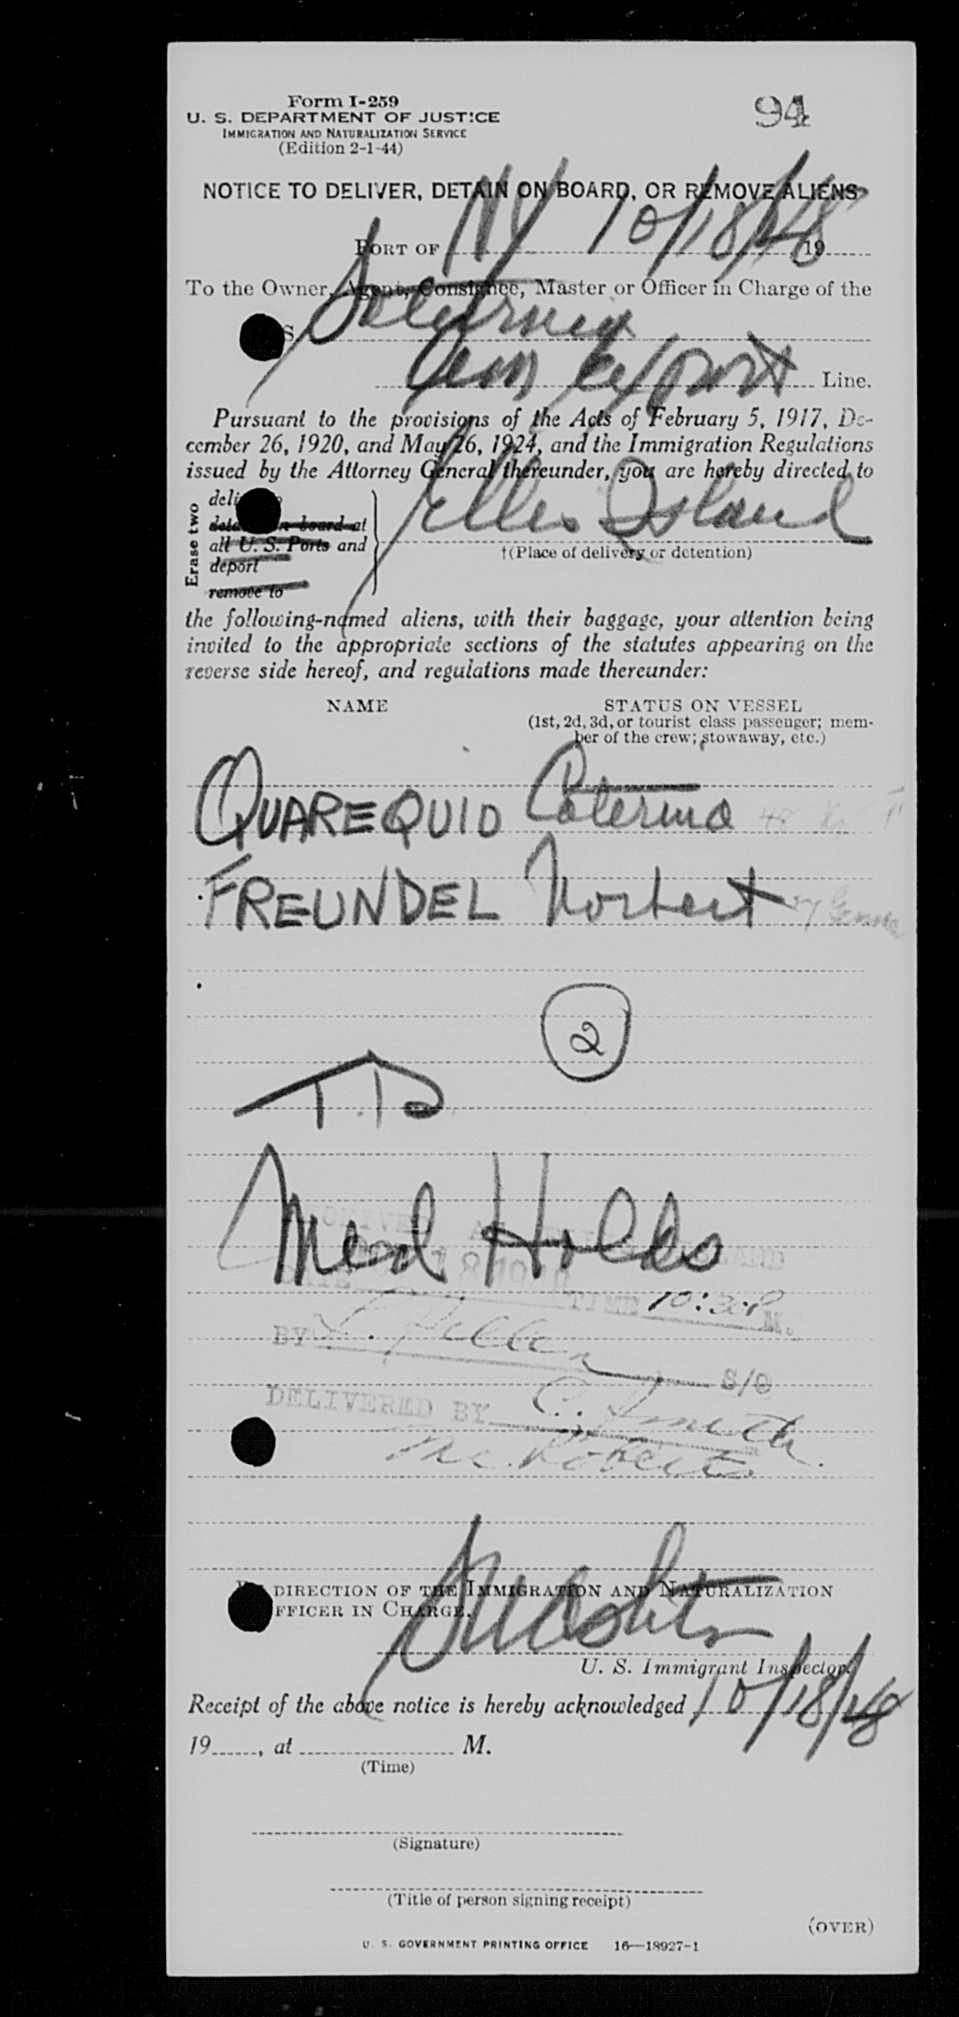 Form I-259
94
U. S. DEPARTMENT OF JUSTICE
IMMIGRATION AND NATURALIZATION SERVICE
(Edition 2-1-44)
NOTICE TO DELIVER, DETAIN ON BOARD, OR REMOVE ALIENS
PORT OF NY 10/18/48 19
To the Owner, Agent, Consignee, Master or Officer in Charge of the
S Saturnia
Am Export Line.
Pursuant to the provisions of the Acts of February 5, 1917, De-
cember 26, 1920, and May 26, 1924, and the Immigration Regulations
issued by the Attorney General thereunder, you are hereby directed to
Erase two
deliver to
detain on board at
all U. S. Ports and
deport
remove to
Ellis Island
†(Place of delivery or detention)
the following-named aliens, with their baggage, your attention being
invited to the appropriate sections of the statutes appearing on the
reverse side hereof, and regulations made thereunder:
NAME STATUS ON VESSEL
(1st, 2d, 3d, or tourist class passenger; mem-
ber of the crew; stowaway, etc.)
QUAREQUIO Caterina
FREUNDEL Norbert
2
T.D
Med Holds
ISLAND
DATE 18 TIME 10:30P M.
BY S/O
DELIVERED BY C. Smith
McRoberts
BY DIRECTION OF THE IMMIGRATION AND NATURALIZATION
OFFICER IN CHARGE.
U. S. Immigrant Inspector.
Receipt of the above notice is hereby acknowledged 10/18/48
19, at M.
(Time)
(Signature)
(Title of person signing receipt)
(OVER)
U. S. GOVERNMENT PRINTING OFFICE 16—18927-1